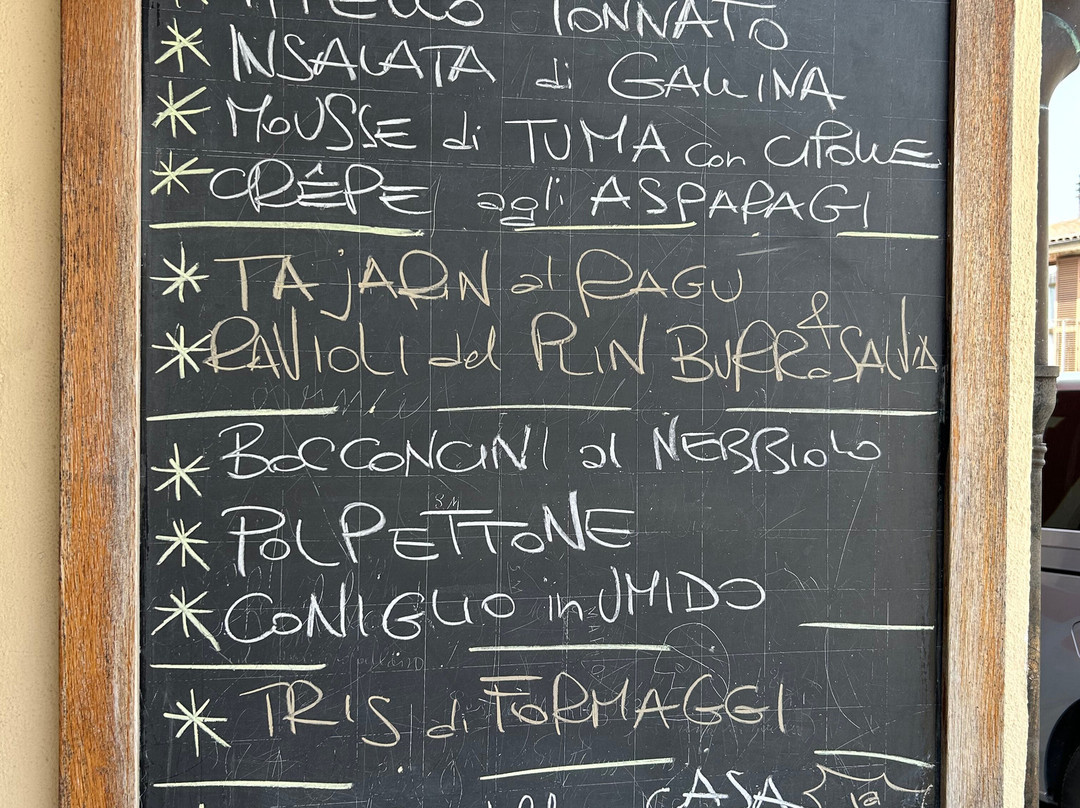 * VITELLO TONNATO
* INSALATA di GALLINA
* MOUSSE di TUMA con CIPOLLE
* CRÊPE agli ASPARAGI
* TAjARIN al RAGU
* RAVIOLI del PLIN BURRO & SALVIA
* BOCCONCINI al NEBBIOLO
* POLPETTONE
* CONIGLIO in UMIDO
* TRIS di FORMAGGI
CASA